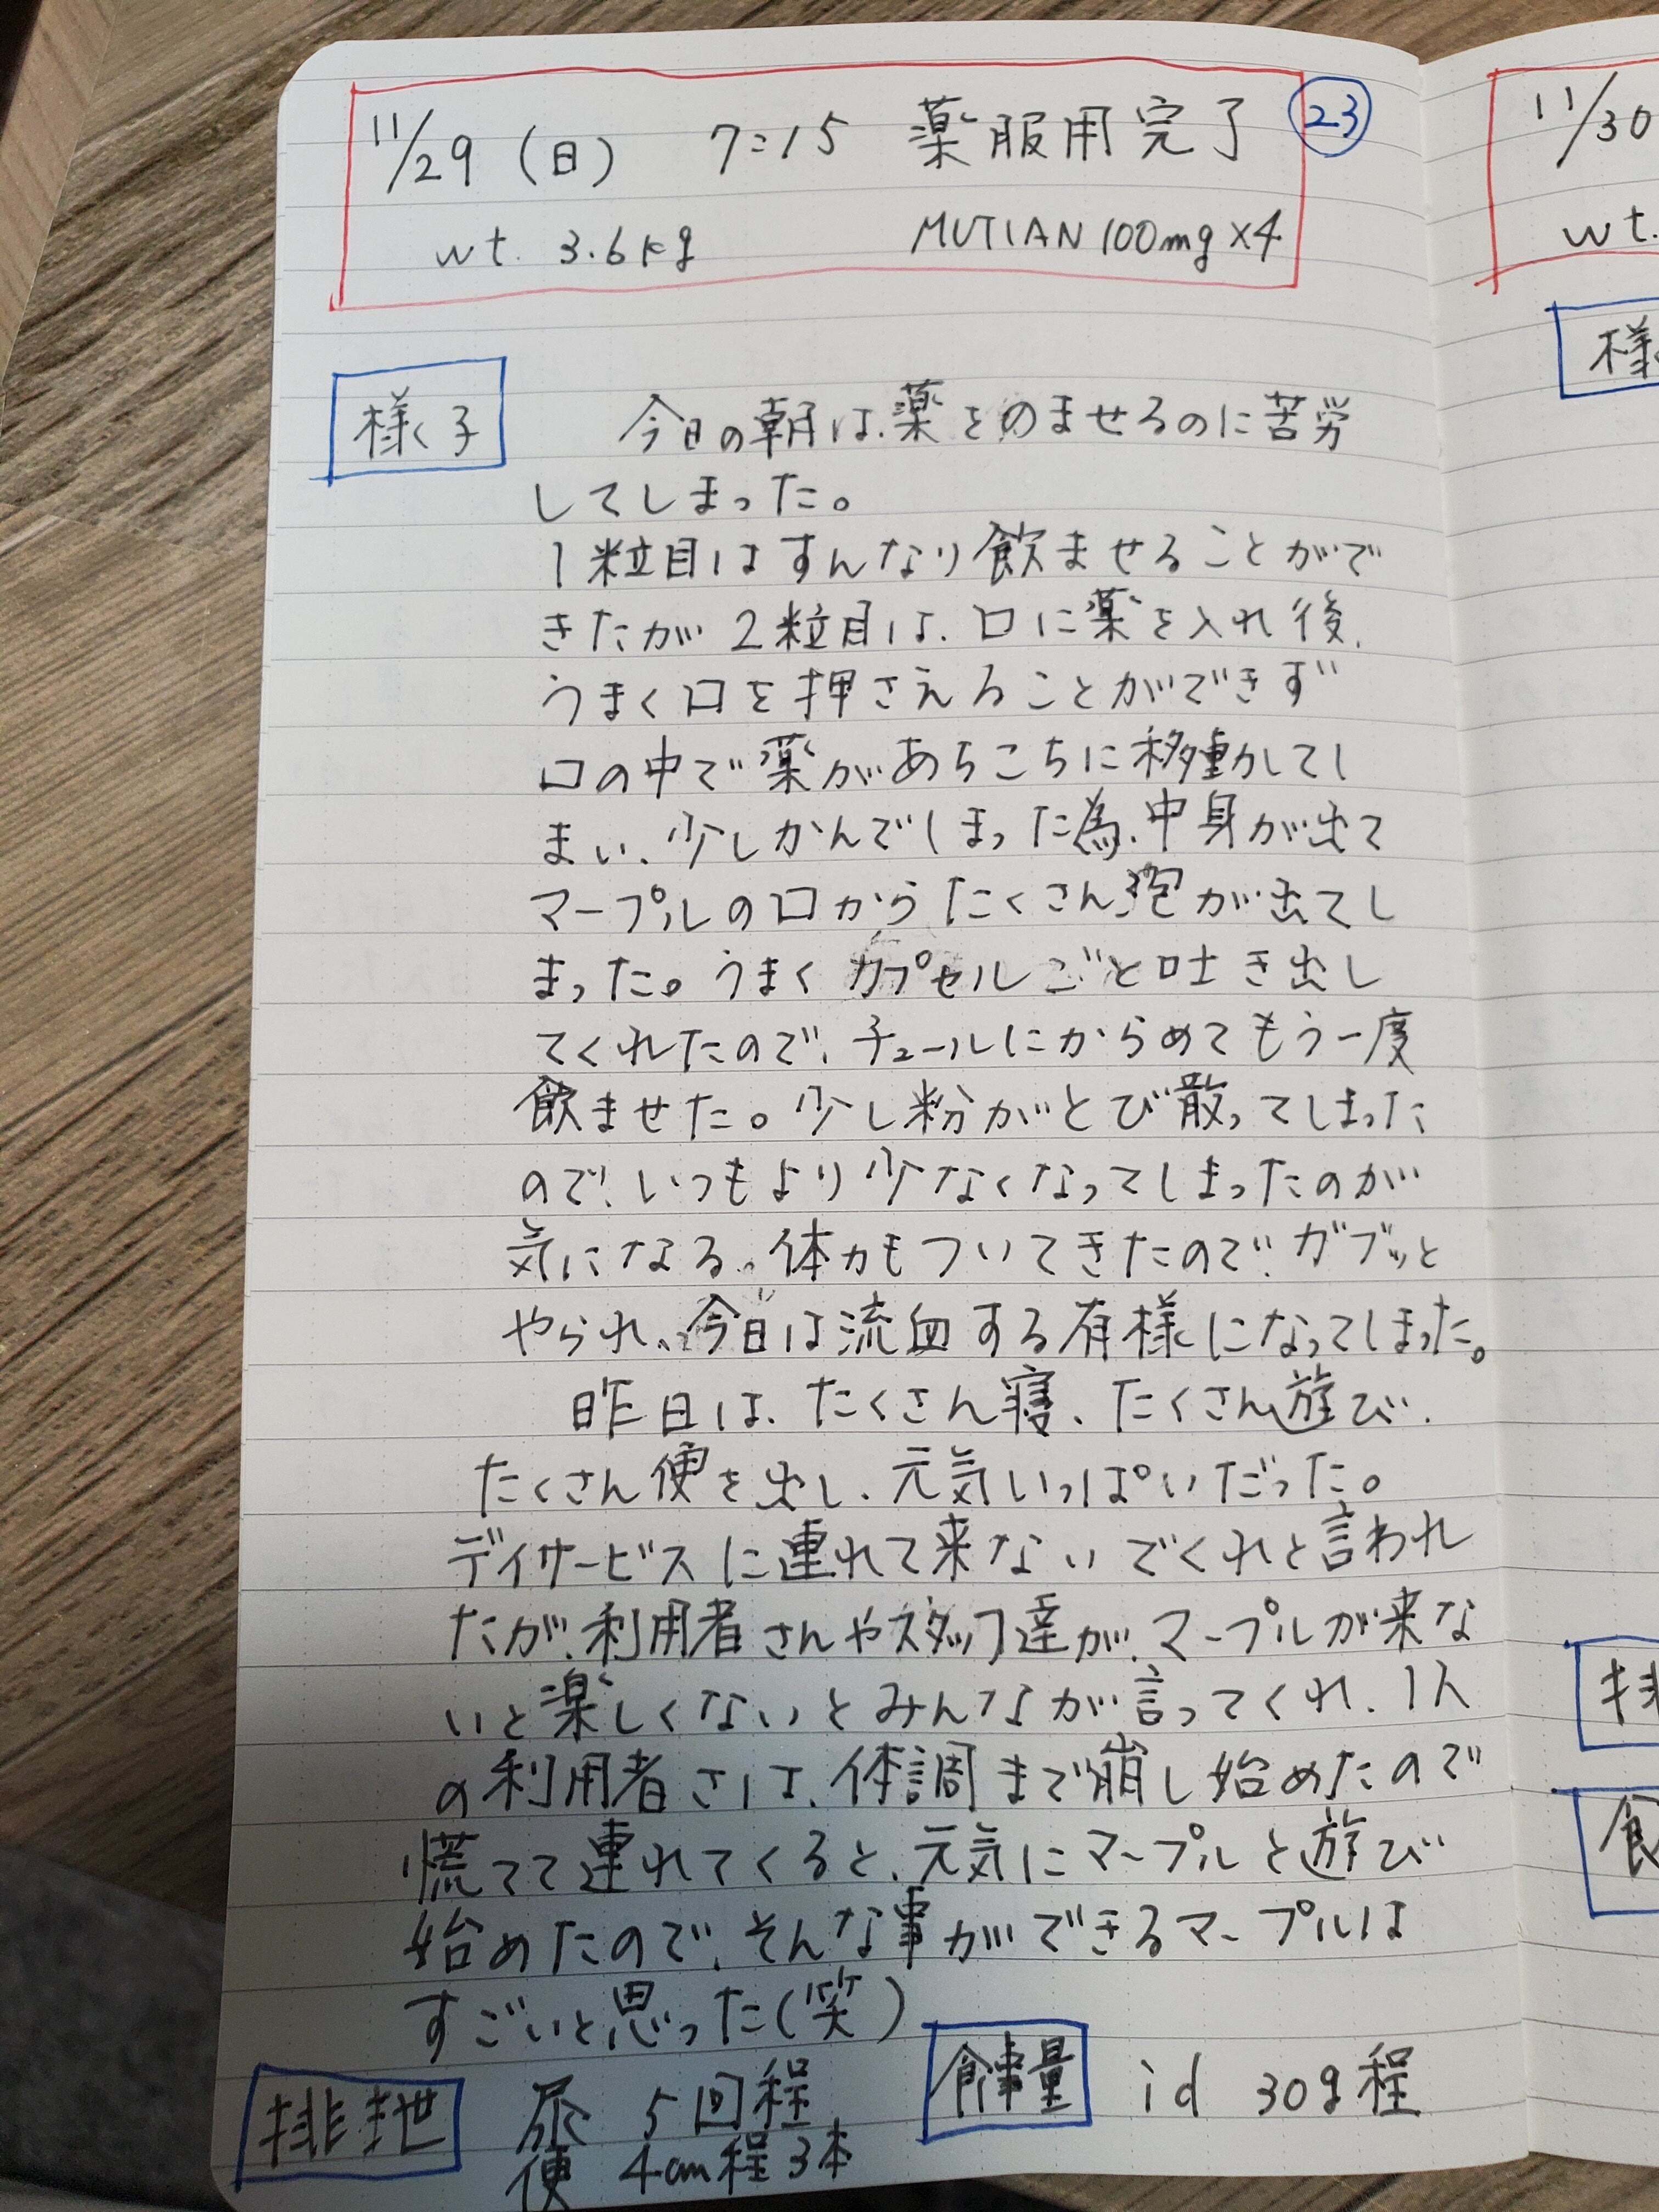 11/29 (日) 7:15 薬服用完了 23
wt. 3.6kg MUTIAN 100mg×4
様子 今日の朝は、薬をのませるのに苦労
してしまった。
1粒目はすんなり飲ませることがで
きたが2粒目は、口に薬を入れ後、
うまく口を押さえることができず
口の中で薬があちこちに移動してし
まい、少しかんでしまった為、中身が出て
マープルの口からたくさん泡が出てし
まった。うまくカプセルごと吐き出し
てくれたので、チュールにからめてもう一度
飲ませた。少し粉がとび散ってしまった
ので、いつもより少なくなってしまったのが
気になる。体力もついてきたので、ガブッと
やられ、今日は流血する有様になってしまった。
昨日は、たくさん寝、たくさん遊び、
たくさん便を出し、元気いっぱいだった。
デイサービスに連れて来ないでくれと言われ
たが、利用者さんやスタッフ達が、マープルが来な
いと楽しくないとみんなが言ってくれ、1人
の利用者さは、体調まで崩し始めたので
慌てて連れてくると、元気にマープルと遊び
始めたので、そんな事ができるマープルは
すごいと思った(笑)
排泄 尿 5回程
便 4cm程3本
食事量 id 30g程
11/30
wt.
様
排
食